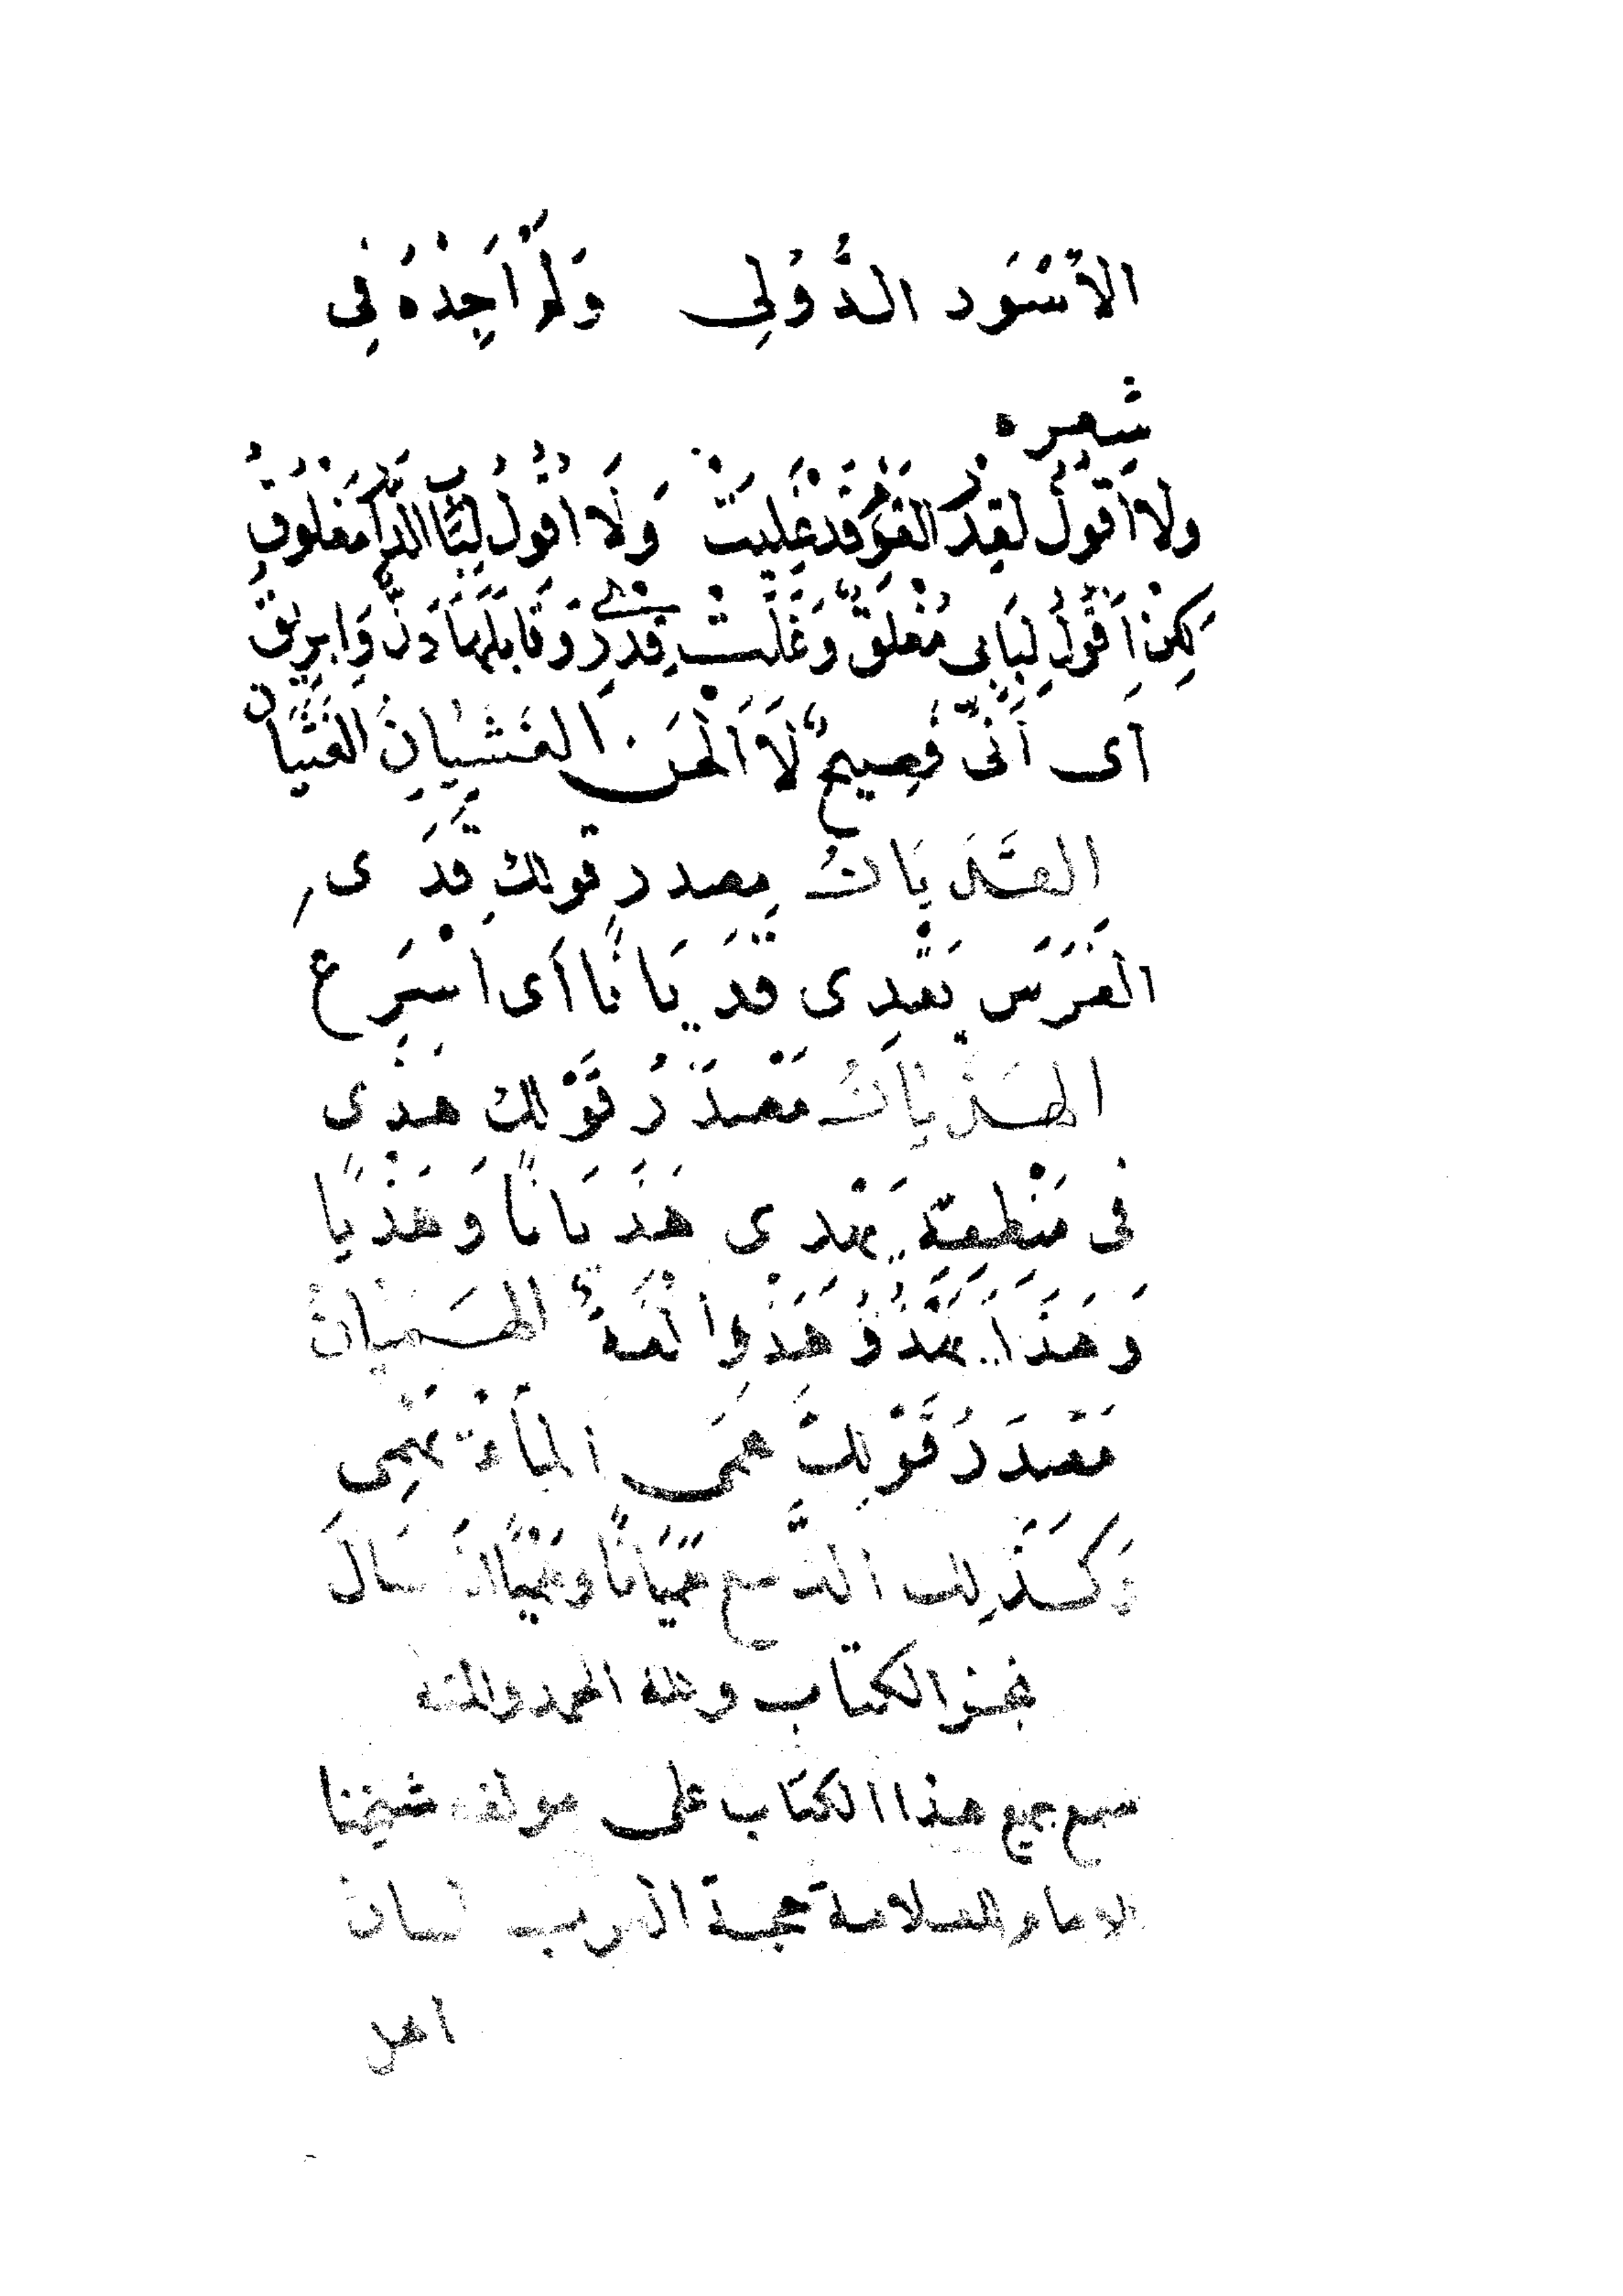 الاَسْوَد الدُّؤَلِي وَلَمْ اَجِدْهُ فِي
شِعره
ولا اَقُولُ لقِدْرِ القَوْمِ قَدْ غَلِيَتْ وَلَا اَقُولُ لِبَابِ الدَّارِ مَغْلُوقُ
لكِنْ اَقُولُ لِبَابِى مُغْلَقٌ وَغَلَتْ قِدْرِي وَقَابَلَهَا دَنٌّ وَاِبرِيقُ
اَى اَنِّى فَصِيحٌ لَا اَلْحَن الغَشَيَانُ الغَثَيَان
القَدَيَانُ مصدر قولكِ قَدَى
الفَرَسَ يَقْدِى قَدَيَانًا اَى اَسْرَع
الهَذَيَانُ مَصْدَرُ قَوْلكَ هَذَى
فى مَنْطِقِهِ يَهْذِى هَذَيَانًا وَهَذْيًا
وَهَذَا يَهْذُو هَذْوًا لُغَةٌ الهَمَيَانُ
مَصْدَرُ قَوْلِكَ هَمَى المَاءُ يَهْمِى
وَكَذَلِكَ الدَّمع هَمَيَانًا وَهَمْيًا اذَا سَالَ
نجز الكتاب ولله الحمد والمنة
سمع جميع هذا الكتاب على مولفه شيخنا
الامام العلامة حجة العرب لسان
اهل